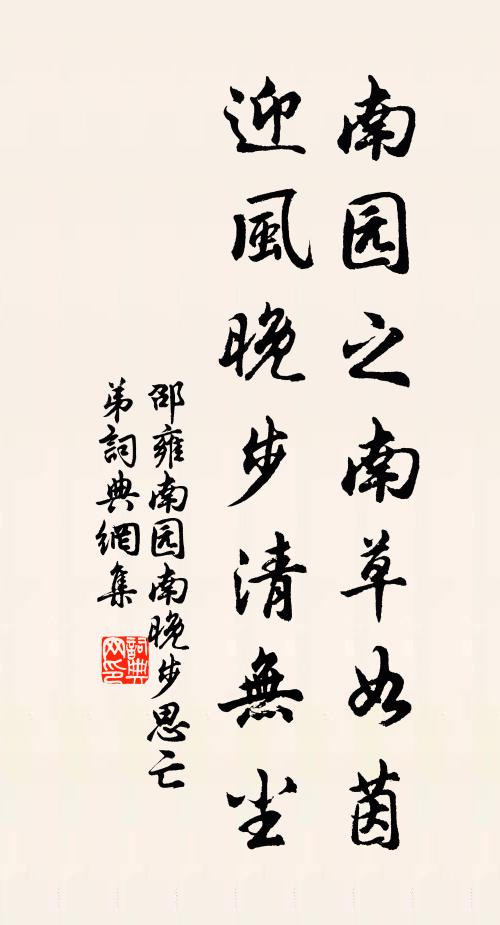 南园之南草如茵
迎風晚步清無尘
邵雍南园南晚步思亡
弟詞典網集
詞典网印